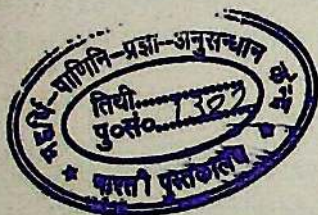 महर्षि-पाणिनि-प्रज्ञा-अनुसन्धान केन्द्र
तिथी..........
पु०सं०....1302
* भारती पुस्तकालय *